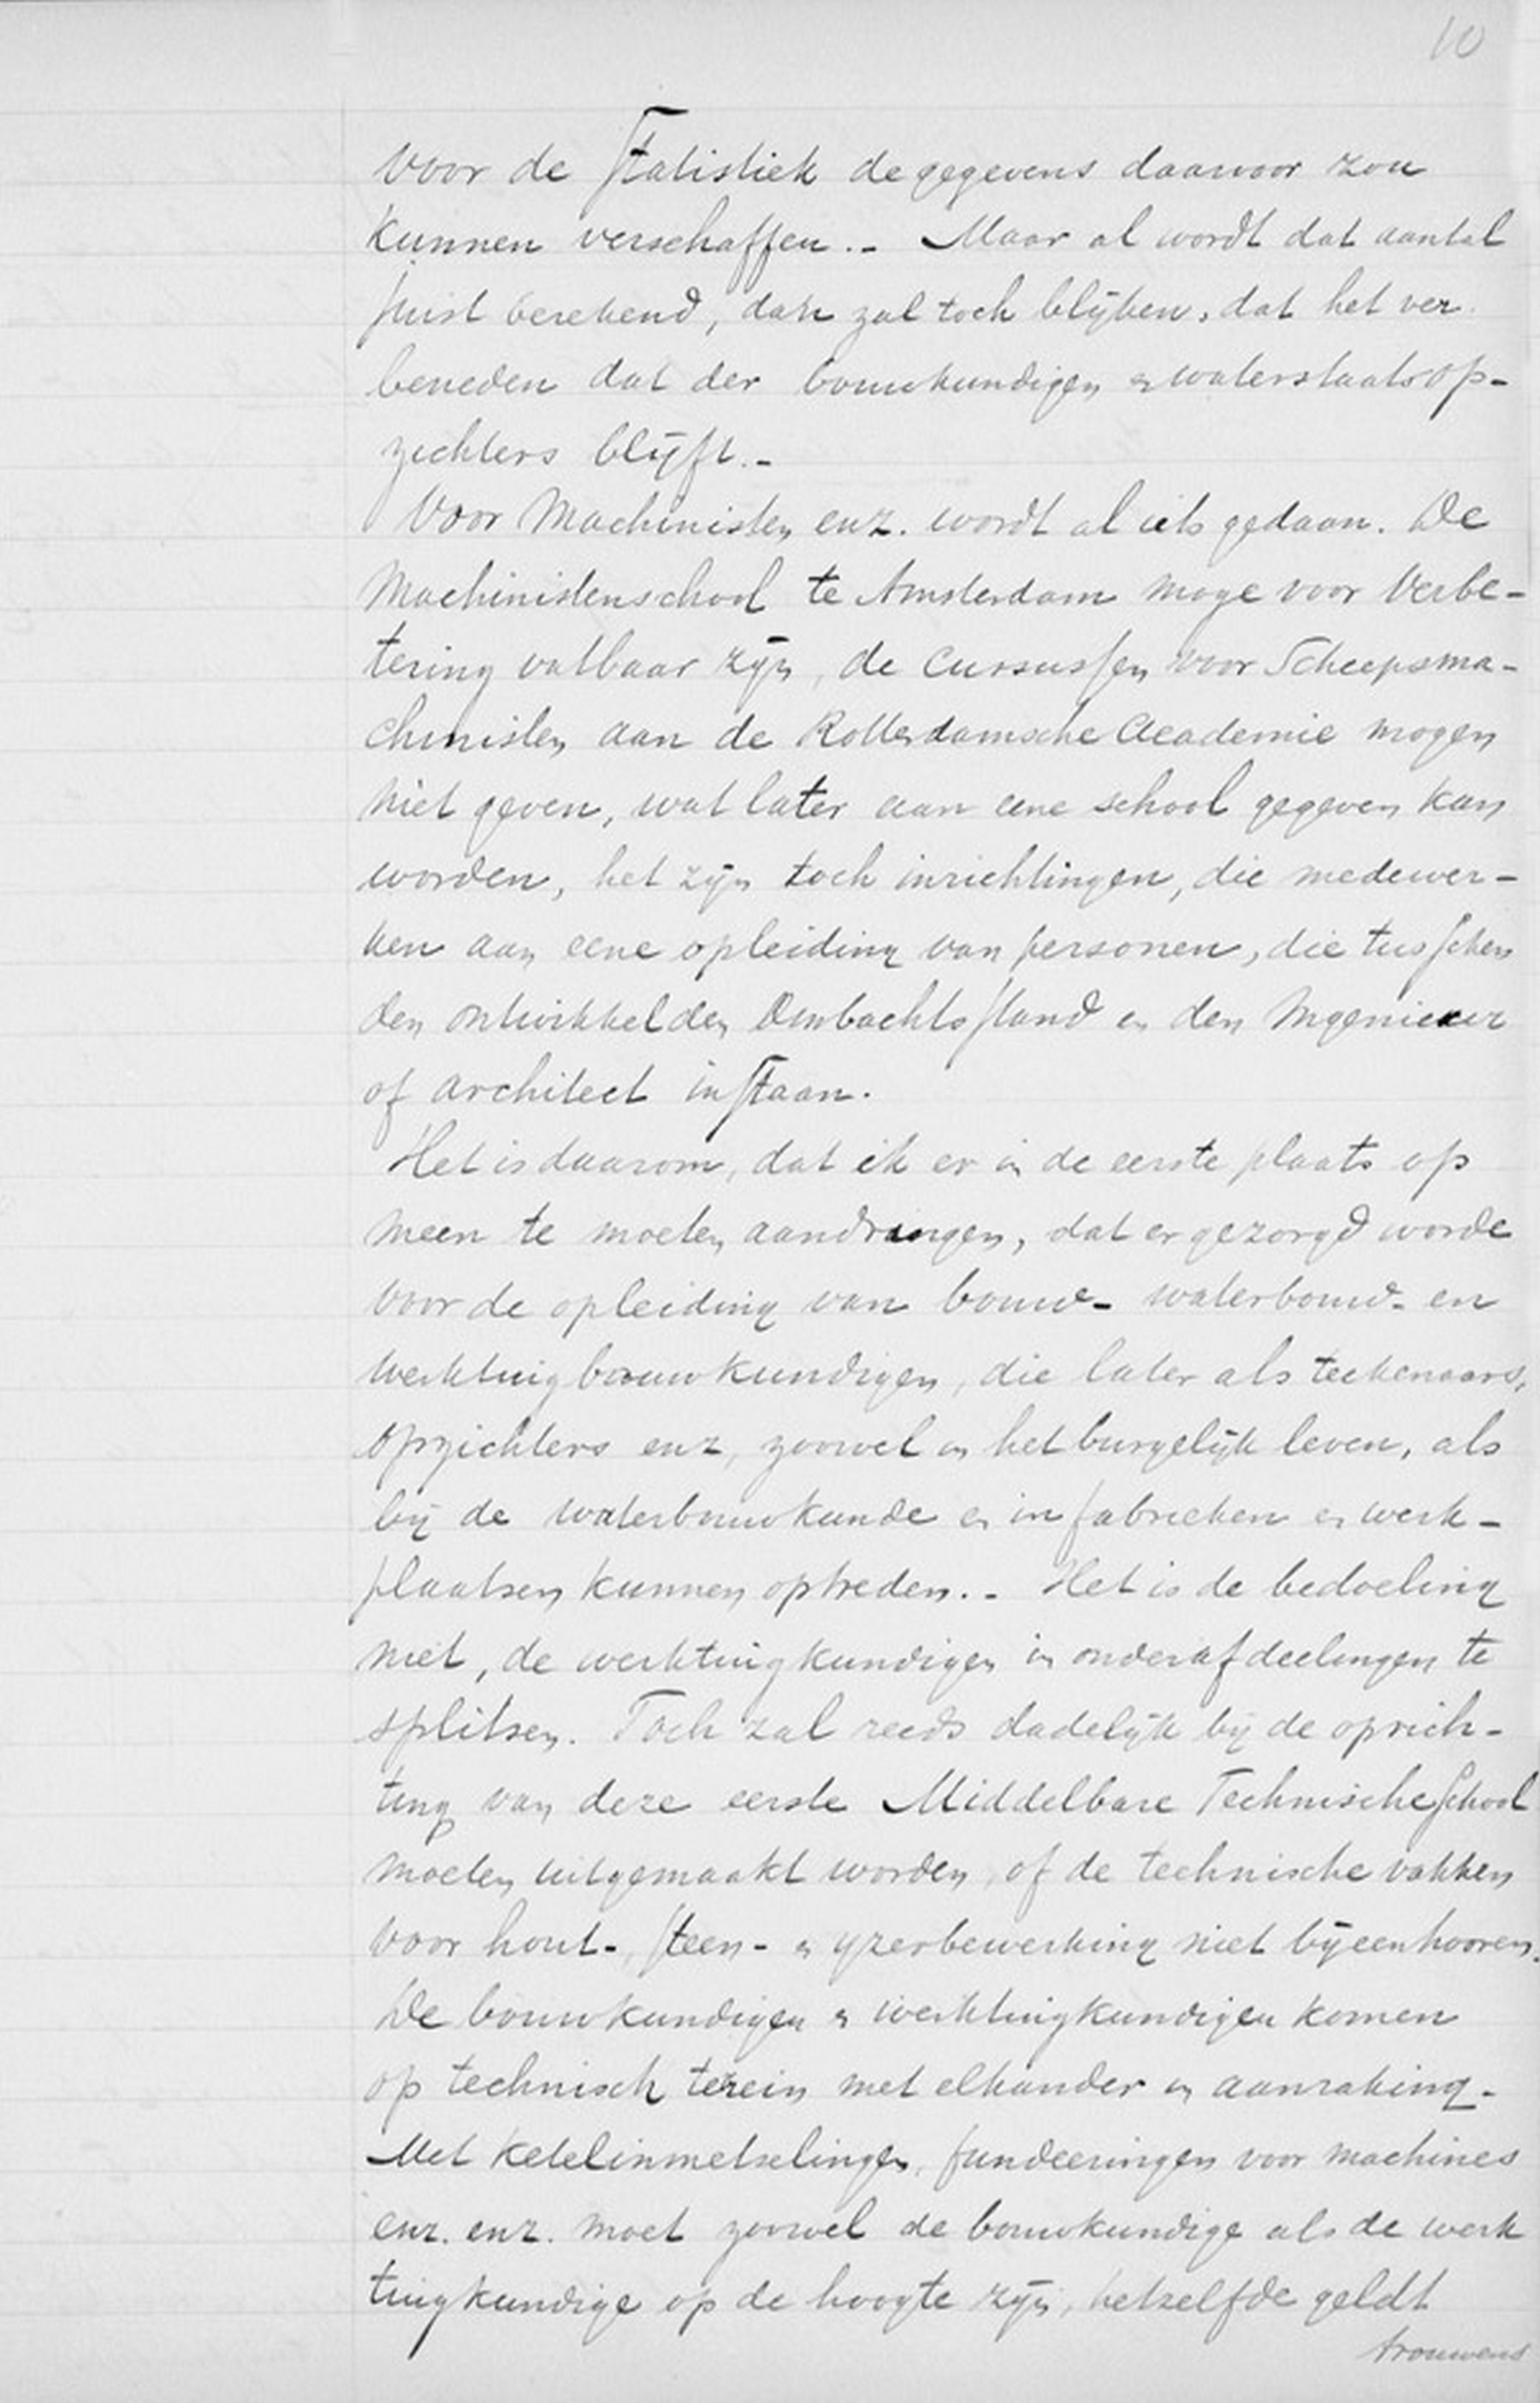 10
voor de Statistiek de gegevens daarvoor zou
kunnen verschaffen.- Maar al wordt dat aantal
juist berekend, dan zal toch blijken, dat het ver
beneden dat der bouwkundigen en waterstaatsop-
zichters blijft.-
Voor Machinisten enz. wordt al iets gedaan. De
Machinistenschool te Amsterdam moge voor verbe-
tering vatbaar zijn, de cursussen voor Scheepsma-
chinisten aan de Rotterdamsche Academie mogen
niet geven, wat later aan eene school gegeven kan
worden, het zijn toch inrichtingen, die medewer-
ken aan eene opleiding van personen, die tusschen
den ontwikkelden Ambachtsstand en den Ingenieur
of architect in staan.
Het is daarom, dat ik er in de eerste plaats op
meen te moeten aandringen, dat er gezorgd worde
voor de opleiding van bouw- waterbouw- en
werktuigbouwkundigen, die later als teekenaars,
opzichters enz, zoowel in het burgelijk leven, als
bij de waterbouwkunde en in fabrieken en werk-
plaatsen kunnen optreden.- Het is de bedoeling
niet, de werktuigkundigen in onderafdeelingen te
splitsen. Toch zal reeds dadelijk bij de oprich-
ting van deze eerste Middelbare Technische School
moeten uitgemaakt worden, of de technische vakken
voor hout-, steen- en ijzerbewerking niet bijeenhooren.
De bouwkundigen en werktuigkundigen komen
op technisch terein met elkander in aanraking.
Met ketelinmetselingen, fundeeringen voor machines
enz. enz. moet zoowel de bouwkundige als de werk
tuigkundige op de hoogte zijn, hetzelfde geldt
trouwens